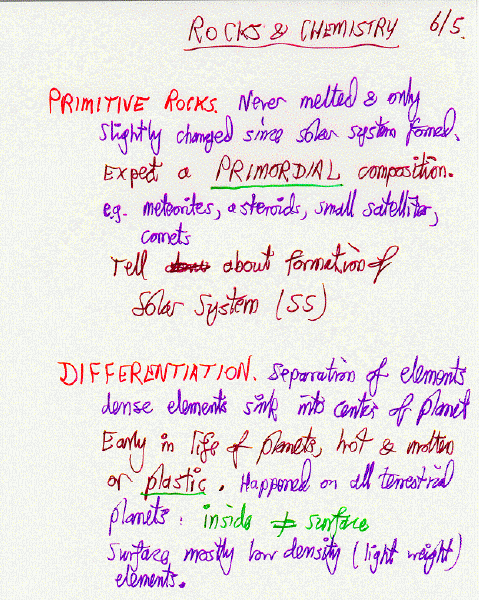 ROCKS & CHEMISTRY 6/5.
PRIMITIVE ROCKS. Never melted & only
slightly changed since solar system formed.
Expect a PRIMORDIAL composition.
e.g. meteorites, asteroids, small satellites,
comets
Tell about formation of
Solar System (SS)
DIFFERENTIATION. Separation of elements
dense elements sink into center of planet
Early in life of planets, hot & molten
or plastic. Happened on all terrestrial
planets: inside ≠ surface
Surface mostly low density (light weight)
elements.